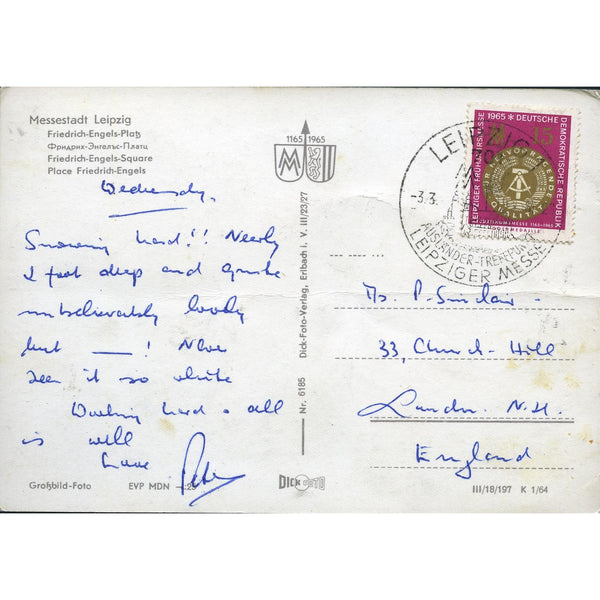 Messestadt Leipzig
Friedrich-Engels-Platz
Фридрих-Энгельс-Платц
Friedrich-Engels-Square
Place Friedrich-Engels
Wednesday.
Snowing hard!! Nearly
1 foot deep and quite
unbelievably lovely
but — ! Never
seen it so white
Working hard & all
is well
Love
Peter
Großbild-Foto EVP MDN -,25
1165 1965
MM
Nr. 6185 Dick-Foto-Verlag, Erlbach i. V. III/23/27
DICK FOTO
1965 ★ DEUTSCHE
DEMOKRATISCHE REPUBLIK
LEIPZIGER FRÜHJAHRSMESSE
15
HERVORRAGENDE
QUALITÄT
JUBILÄUMSMESSE 1165-1965
LEIPZIG
-3.3.
AUSLÄNDER-TREFFPUNKT
LEIPZIGER MESSE
P. Sinclair
33, Church Hill
London N.21.
England
III/18/197 K 1/64